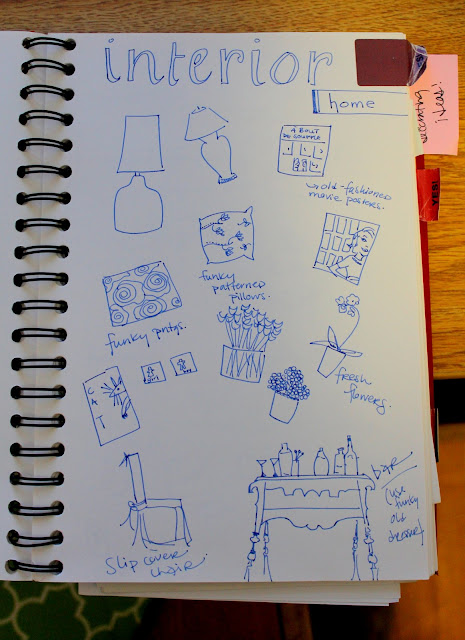 interior
home
decorating
ideas!
A BOUT
DE SOUFFLE
old-fashioned
movie posters.
funky
patterned
pillows.
funky pntgs.
CAT
fresh
flowers.
bar
(use
funky
old
dresser)
slip cover
chair.